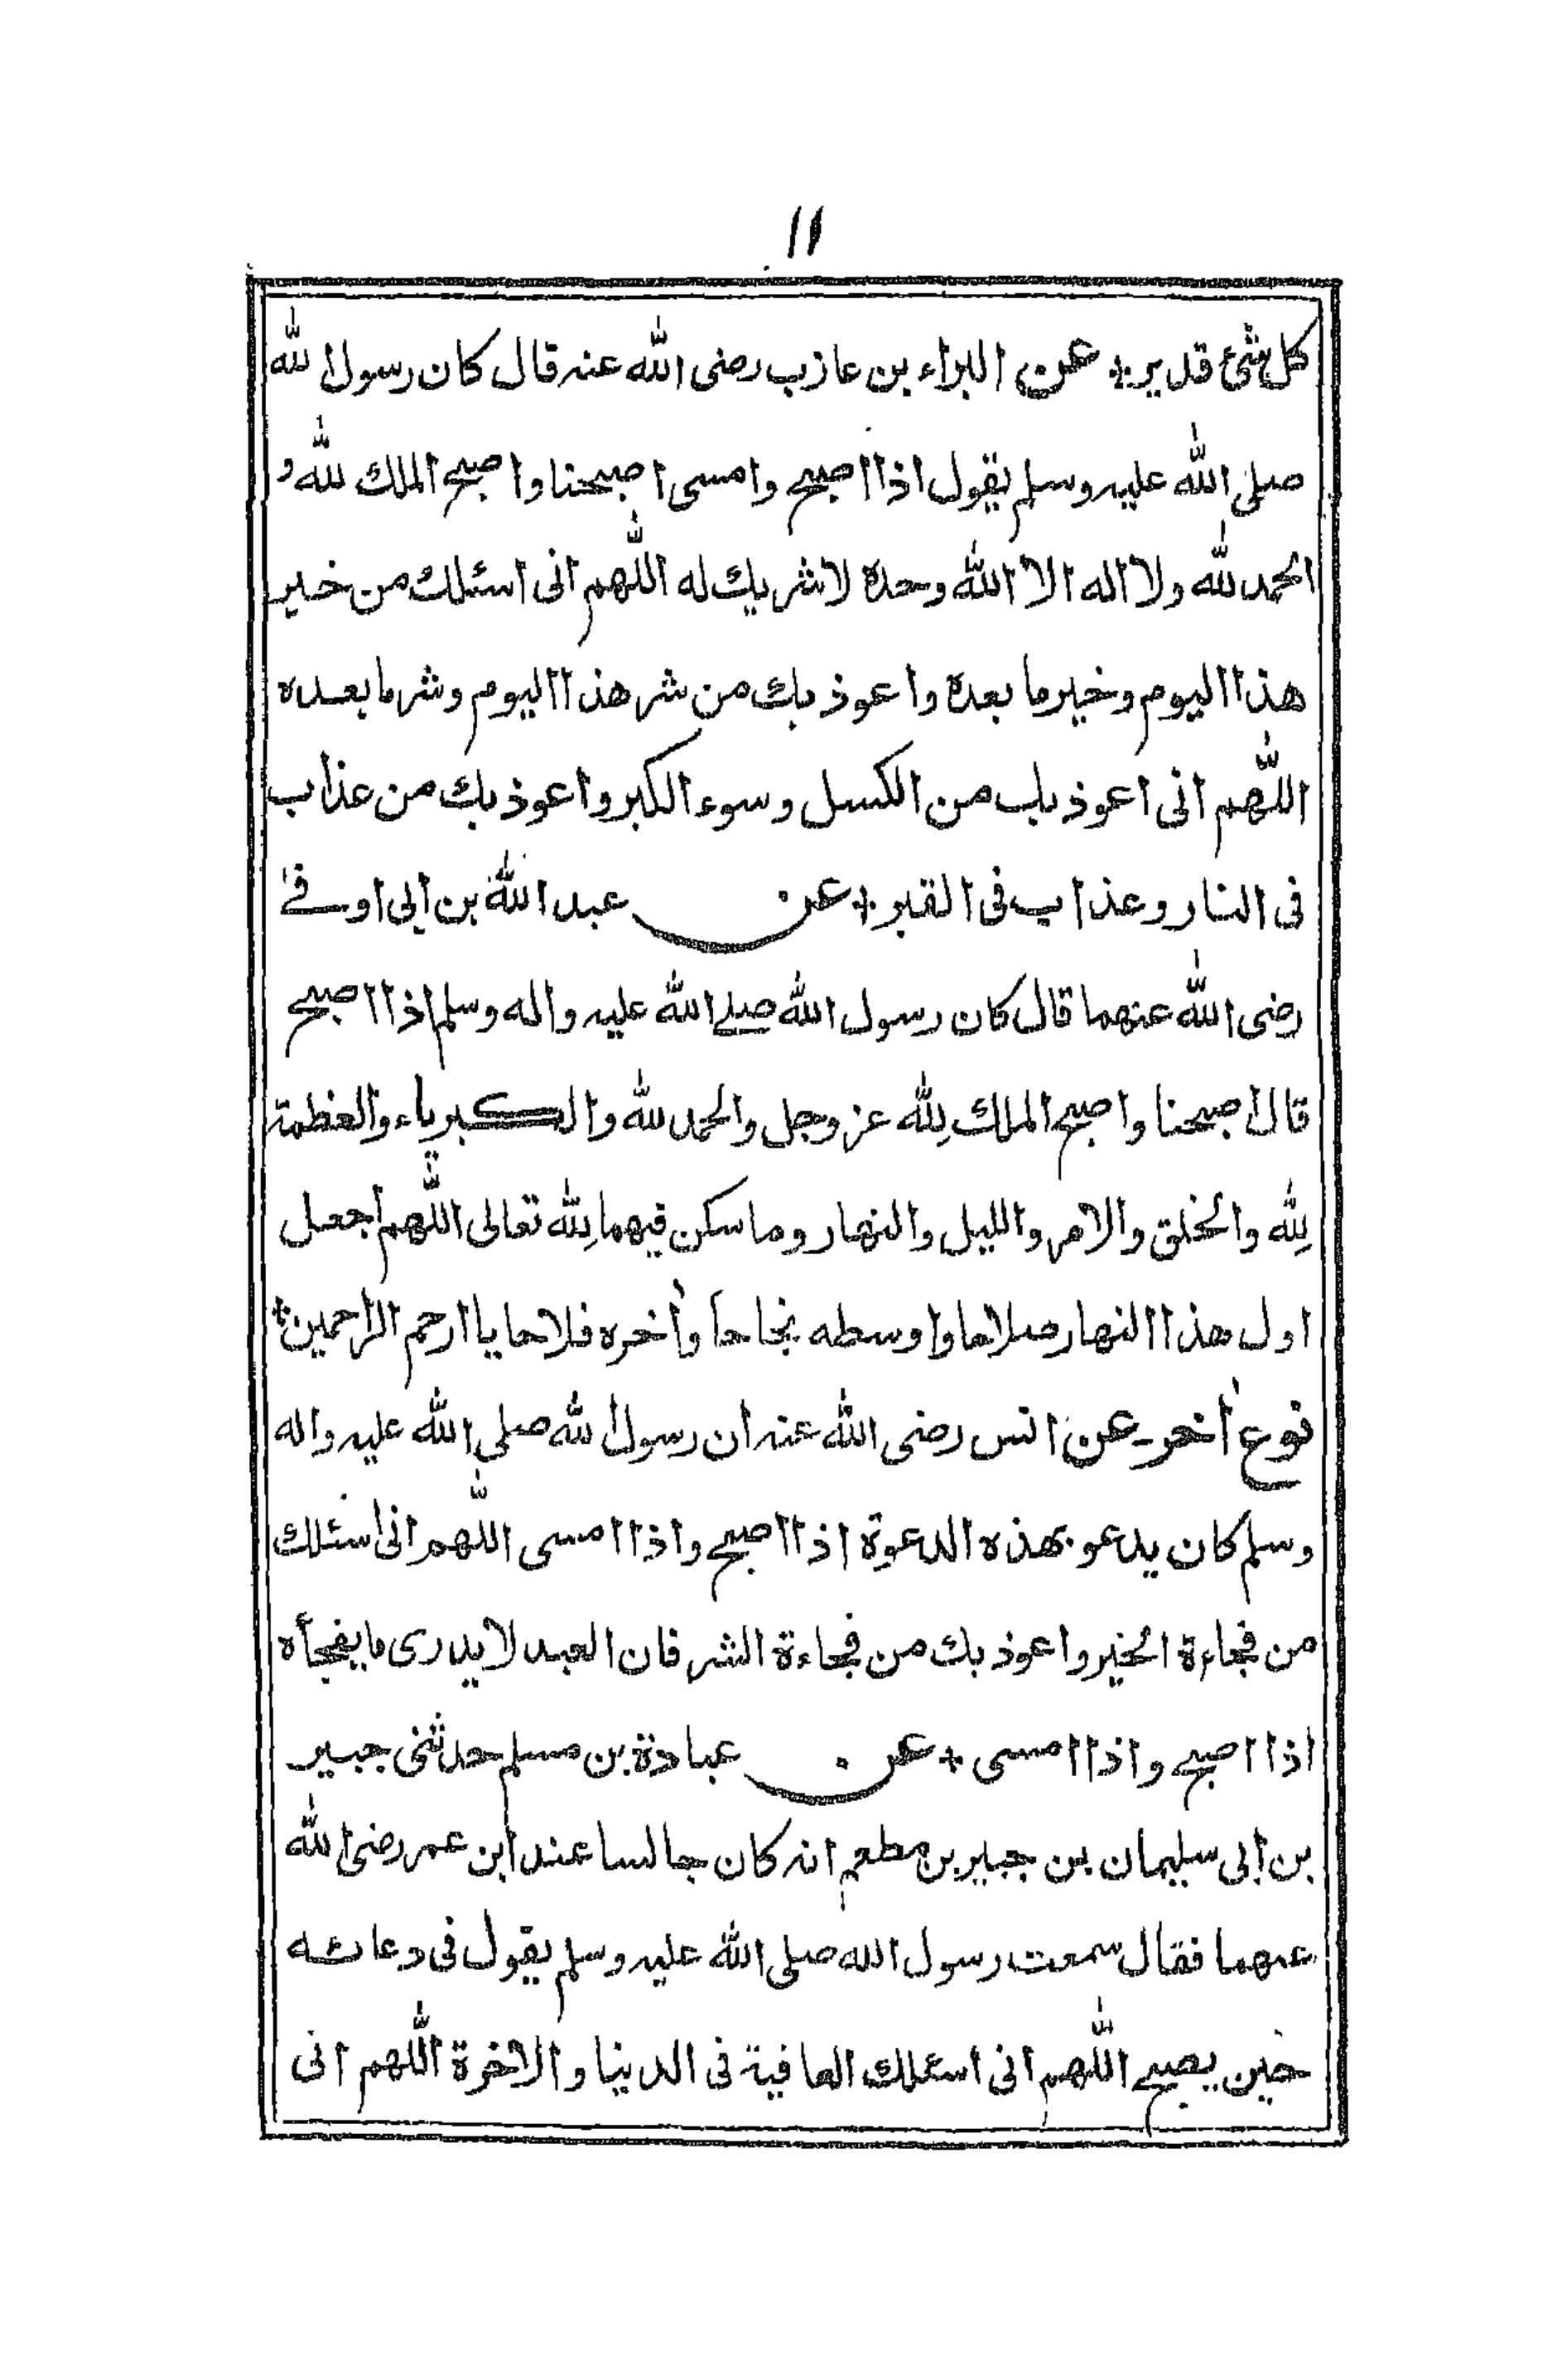 ١١
كل شئ قدير + عن البراء بن عازب رضى الله عنه قال كان رسول الله
صلى الله عليه وسلم يقول اذا اصبح وامسى اصبحنا واصبح الملك لله و
الحمد لله ولا اله الا الله وحدة لا شريك له اللهم انى اسئلك من خير
هذا اليوم وخير ما بعدة واعوذ بك من شر هذا اليوم وشر ما بعده
اللهم انى اعوذ بك من الكسل وسوء الكبر واعوذ بك من عذاب
فى النار وعذاب فى القبر + عن عبد الله بن ابى اوفى
رضى الله عنهما قال كان رسول الله صلى الله عليه واله وسلم اذا اصبح
قال اصبحنا واصبح الملك لله عز وجل والحمد لله والكبرياء والعظمة
لله والخلق والامر والليل والنهار وما سكن فيهما لله تعالى اللهم اجعل
اول هذا النهار صلاحا واوسطه نجاحا وأخره فلاحا يا ارحم الراحمين +
نوع أخر - عن انس رضى الله عنه ان رسول الله صلى الله عليه واله
وسلم كان يدعو بهذه الدعوة اذا اصبح واذا امسى اللهم انى اسئلك
من فجاءة الخير واعوذ بك من فجاءة الشر فان العبد لا يدرى ما يفجأه
اذا اصبح واذا امسى + عن عبادة بن مسلم حدثنى جبير
بن ابى سليمان بن جبير بن مطعم انه كان جالسا عند ابن عمر رضى الله
عنهما فقال سمعت رسول الله صلى الله عليه وسلم يقول فى دعائه
حين يصبح اللهم انى اسئلك العافية فى الدينا والاخرة اللهم انى